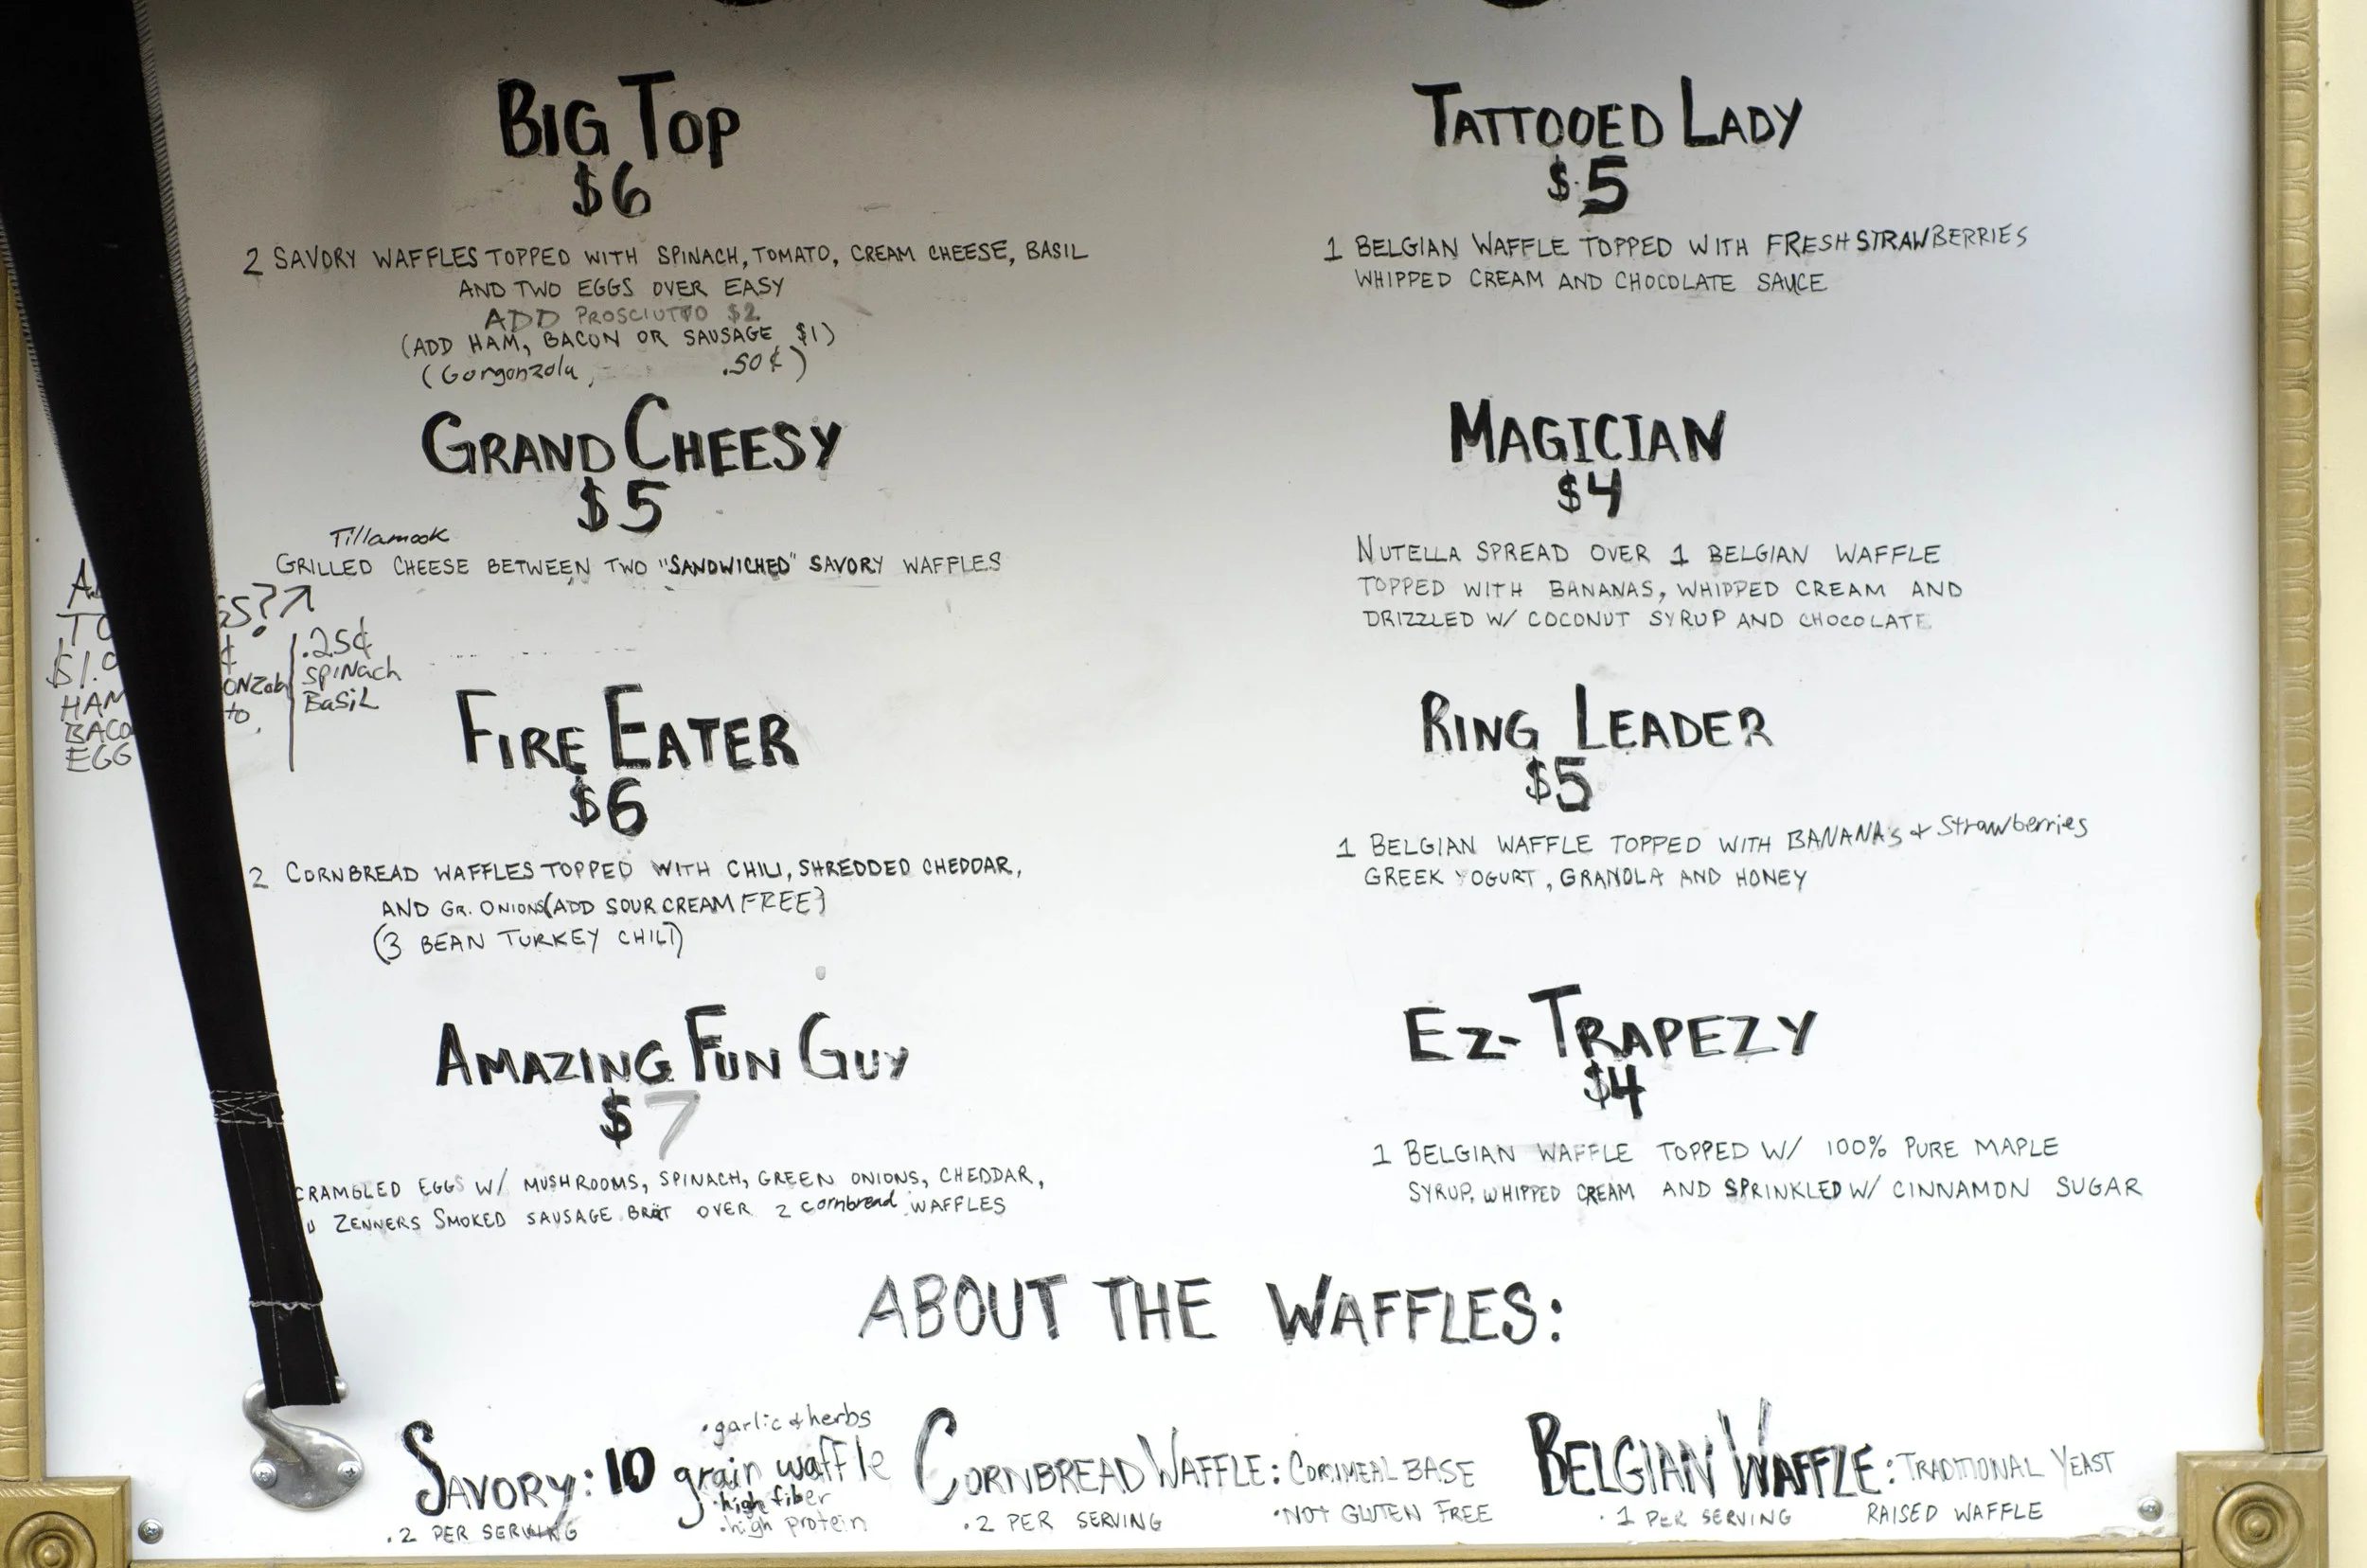 BIG TOP
$6
2 SAVORY WAFFLES TOPPED WITH SPINACH, TOMATO, CREAM CHEESE, BASIL
AND TWO EGGS OVER EASY
ADD PROSCIUTTO $2
(ADD HAM, BACON OR SAUSAGE $1)
(Gorgonzola, .50¢)
GRAND CHEESY
$5
Tillamook
GRILLED CHEESE BETWEEN TWO "SANDWICHED" SAVORY WAFFLES
.25¢
SPINach
BASiL
HAM
EGG
FIRE EATER
$6
2 CORNBREAD WAFFLES TOPPED WITH CHILI, SHREDDED CHEDDAR,
AND GR. ONIONS (ADD SOUR CREAM FREE)
(3 BEAN TURKEY CHILI)
AMAZING FUN GUY
$7
CRAMBLED EGGS W/ MUSHROOMS, SPINACH, GREEN ONIONS, CHEDDAR,
ZENNERS SMOKED SAUSAGE BRAT OVER 2 cornbread WAFFLES
TATTOOED LADY
$5
1 BELGIAN WAFFLE TOPPED WITH FRESH STRAWBERRIES
WHIPPED CREAM AND CHOCOLATE SAUCE
MAGICIAN
$4
NUTELLA SPREAD OVER 1 BELGIAN WAFFLE
TOPPED WITH BANANAS, WHIPPED CREAM AND
DRIZZLED W/ COCONUT SYRUP AND CHOCOLATE
RING LEADER
$5
1 BELGIAN WAFFLE TOPPED WITH BANANAS & Strawberries
GREEK YOGURT, GRANOLA AND HONEY
EZ-TRAPEZY
$4
1 BELGIAN WAFFLE TOPPED W/ 100% PURE MAPLE
SYRUP, WHIPPED CREAM AND SPRINKLED W/ CINNAMON SUGAR
ABOUT THE WAFFLES:
SAVORY: 10 grain waffle
• garlic & herbs
• high fiber
• high protein
• 2 PER SERVING
CORNBREAD WAFFLE: CORNMEAL BASE
• 2 PER SERVING • NOT GLUTEN FREE
BELGIAN WAFFLE: TRADITIONAL YEAST
• 1 PER SERVING RAISED WAFFLE